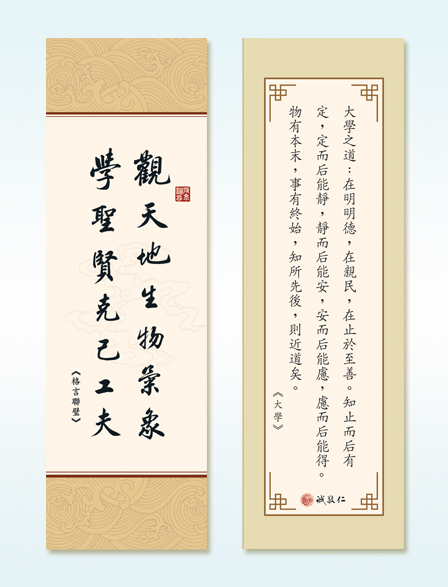 觀天地生物氣象
學聖賢克己工夫
《格言聯璧》
大學之道：在明明德，在親民，在止於至善。知止而后有
定，定而后能靜，靜而后能安，安而后能慮，慮而后能得。
物有本末，事有終始，知所先後，則近道矣。
《大學》
誠敬仁